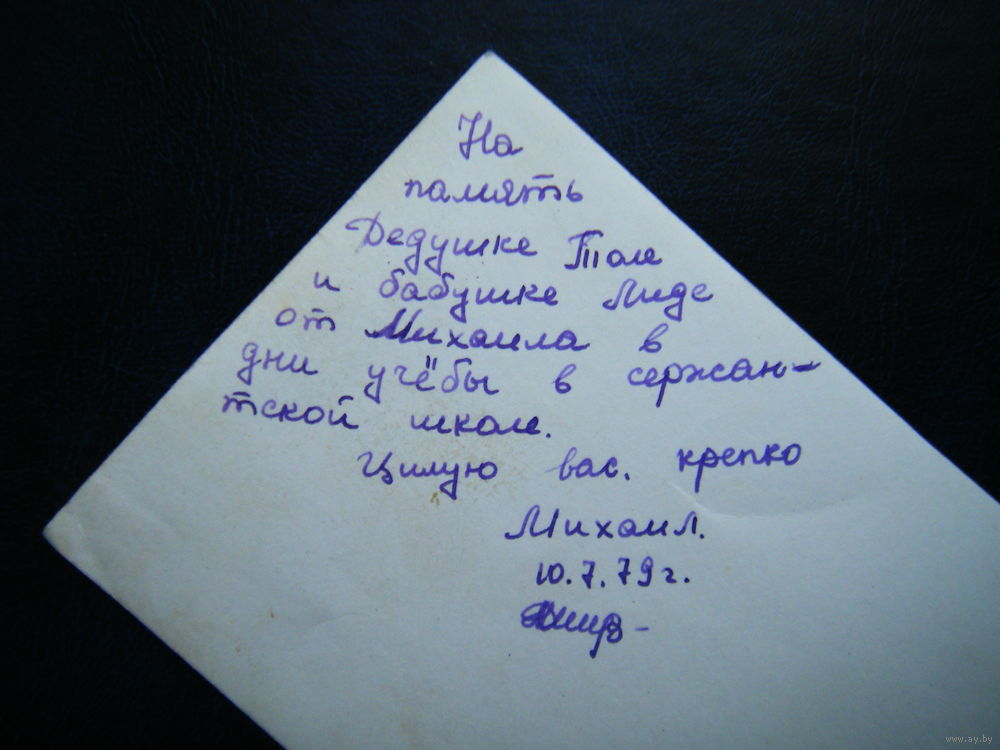 На
память
Дедушке Толе
и бабушке Лиде
от Михаила в
дни учёбы в сержан-
тской школе.
Цилую вас. крепко
Михаил.
10.7.79г.
www.ay.by